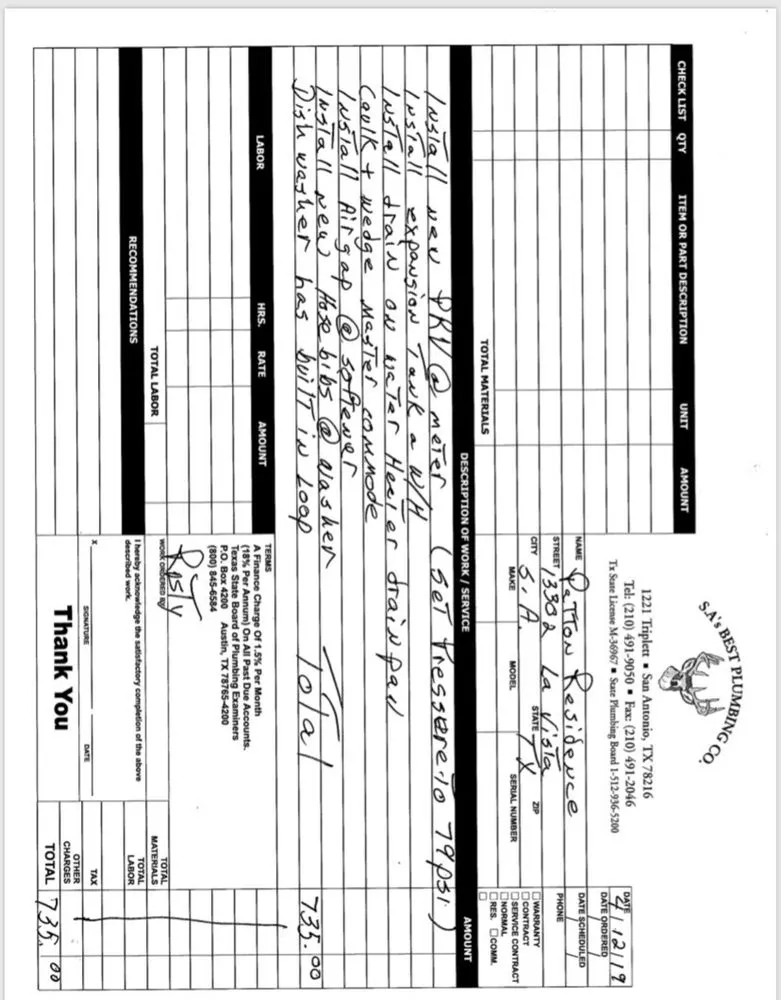 S.A's BEST PLUMBING CO.
1221 Triplett ▪ San Antonio, TX 78216
Tel: (210) 491-9050 ▪ Fax: (210) 491-2046
Tx State License M-36967 ▪ State Plumbing Board 1-512-936-5200
DATE 4/12/19
DATE ORDERED
DATE SCHEDULED
PHONE
NAME Patton Residence
STREET 13302 La Vista
CITY S.A. STATE TX ZIP
MAKE MODEL SERIAL NUMBER
WARRANTY
CONTRACT
SERVICE CONTRACT
NORMAL
RES. COMM.
CHECK LIST QTY ITEM OR PART DESCRIPTION UNIT AMOUNT
TOTAL MATERIALS
DESCRIPTION OF WORK / SERVICE AMOUNT
Install new PRV @ meter (Set Pressure to 79 psi.)
Install expansion Tank @ W/H
Install drain on water Heater drain pan
Caulk + wedge Master commode
Install Airgap @ softener
Install new Hose bibs @ washer
Dish washer has built in Loop Total 735.00
LABOR HRS. RATE AMOUNT
TOTAL LABOR
RECOMMENDATIONS
TERMS
A Finance Charge Of 1.5% Per Month
(18% Per Annum) On All Past Due Accounts.
Texas State Board of Plumbing Examiners
P.O. Box 4200 Austin, TX 78765-4200
(800) 845-6584
Rusty
WORK ORDERED BY
I hereby acknowledge the satisfactory completion of the above
described work.
X
SIGNATURE DATE
Thank You
TOTAL MATERIALS
TOTAL LABOR
TAX
OTHER CHARGES
TOTAL 735.00